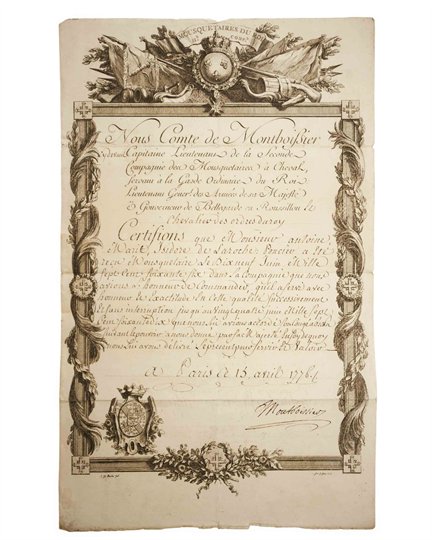 MOUSQUETAIRES DU ROI
Nous Comte de Montboissier
Capitaine Lieutenant de la Seconde
Compagnie des Mousquetaires à Cheval
servans à la Garde Ordinaire du Roi
Lieutenant Géner. des Armées de sa Majesté
& Gouverneur de Bellegarde en Roussillon
Chevalier des ordres du roy
Certifions que Monsieur antoine
Marie Isidore de Laroche Poncier a été
reçu Mousquetaire le Dixneuf Juin Mille
sept Cent soixante six dans la Compagnie que nous
avions l'honneur de Commander, qu'il a servi avec
honneur & Exactitude en Cette qualité successivement
et sans interruption jusqu'au vingt quatre juin Mille sept
Cent soixante dix que nous lui avions accordé
avons donné
nous lui avons délivré le présent pour servir et valoir
à Paris ce 15 avril 1776
Montboissier